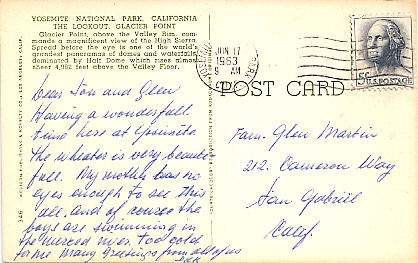 YOSEMITE NATIONAL PARK, CALIFORNIA
THE LOOKOUT, GLACIER POINT
Glacier Point, above the Valley Rim, com-
mands a magnificent view of the High Sierra.
Spread before the eye is one of the world's
grandest panoramas of domes and waterfalls,
dominated by Half Dome which rises almost
sheer 4,982 feet above the Valley Floor.
JUN 17
1963
9 AM
5¢ U.S. POSTAGE
POST CARD
Dear Jon and Glen
Having a wonderfull
time here at Yosemite
The wheater is very beauti
full. My mother has no
eyes enough to see this
all. And of course the
boys are swimming in
the Merced river. Too cold
for me Many Greetings from all of us
Fam. Glen Martin
212. Cameron Way
San Gabriel
Calif.
346